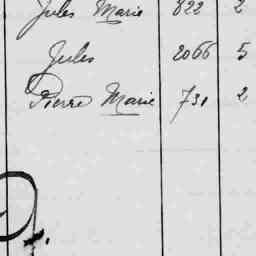 Jules Marie 822 2
Jules 2066 5
Pierre Marie 731 2